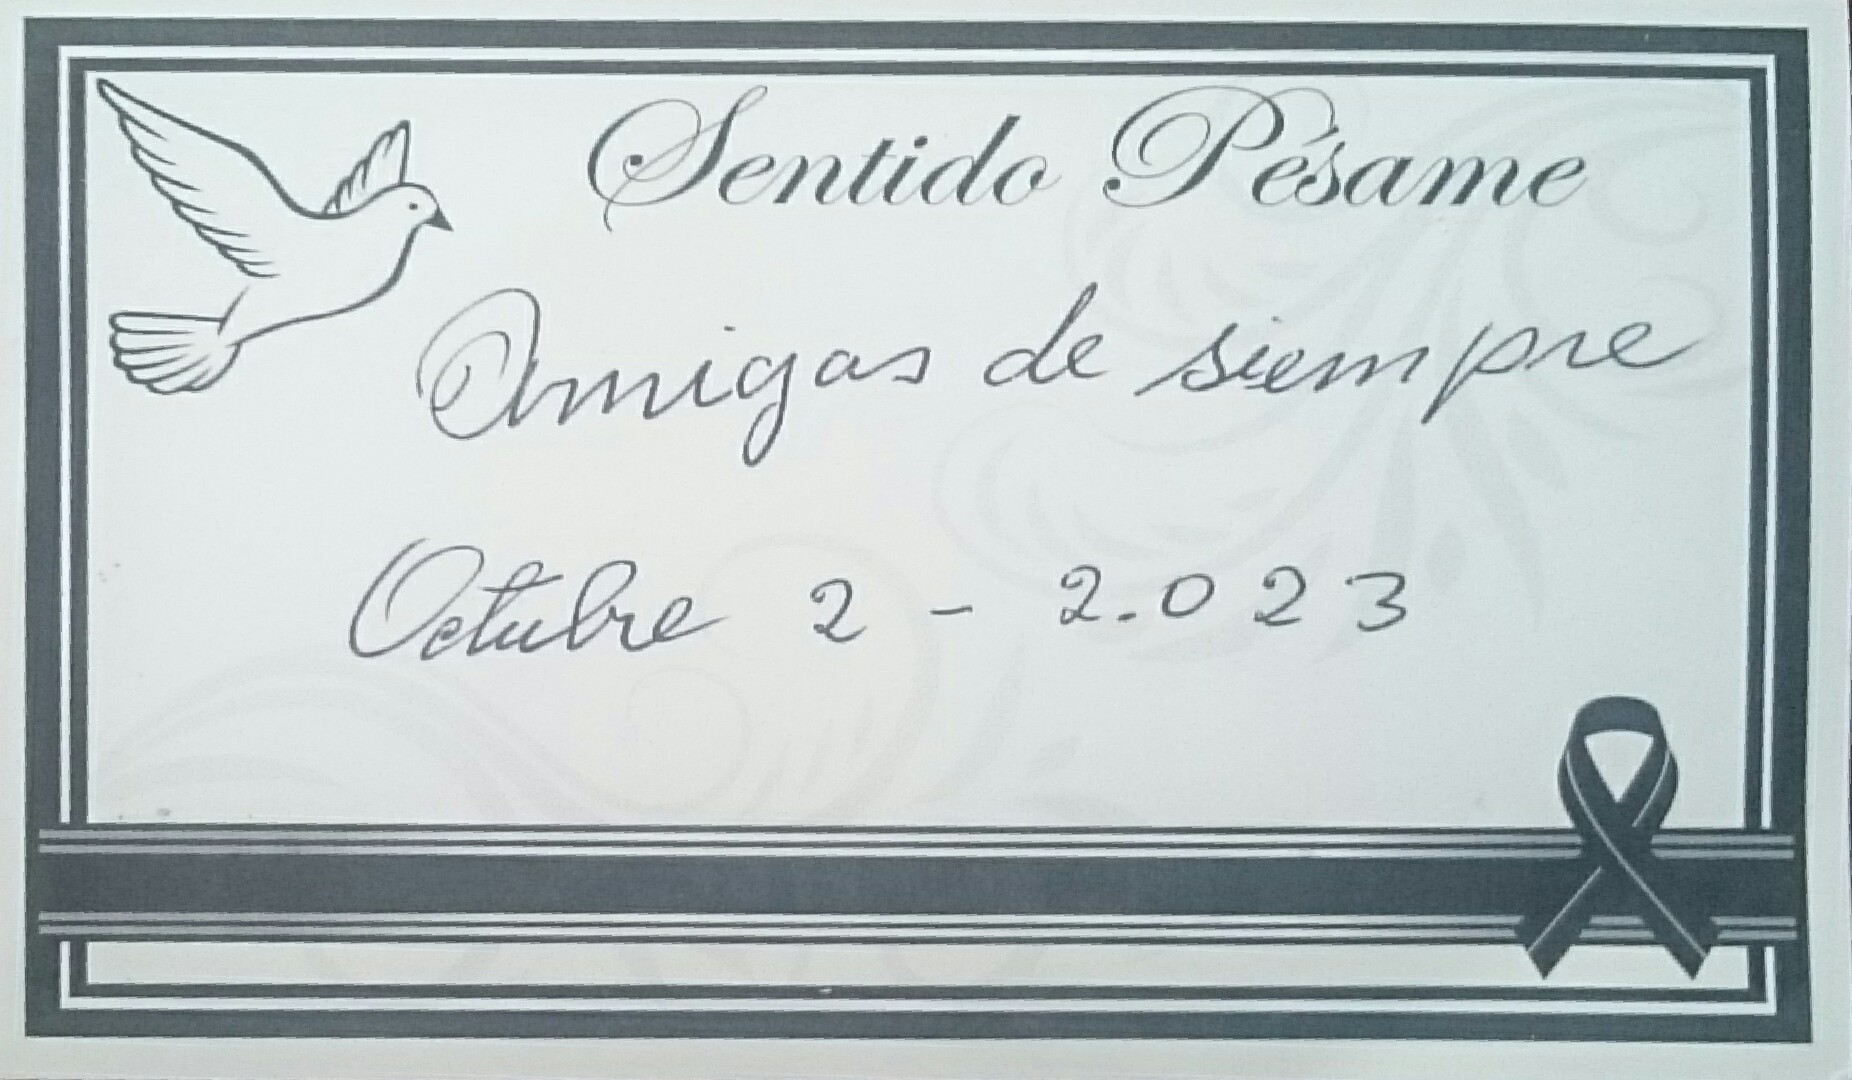 Sentido Pésame
Amigas de siempre
Octubre 2 - 2.023